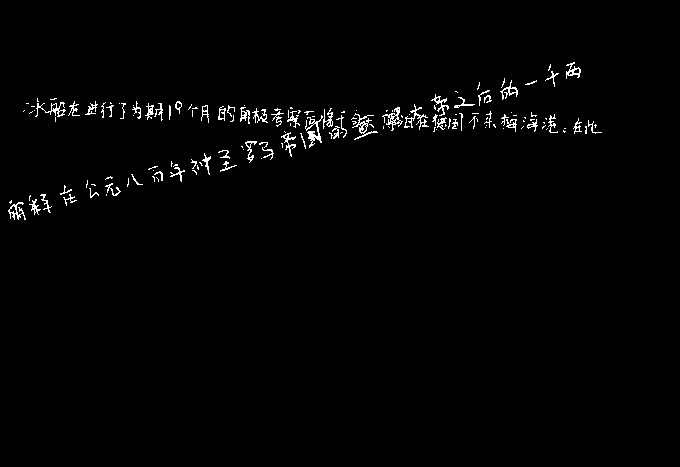 冰船在进行了为期19个月的南极考察后将于 日在德国不来梅海港。在此
解释在公元八百年神圣罗马帝国的 大帝之后的一千两